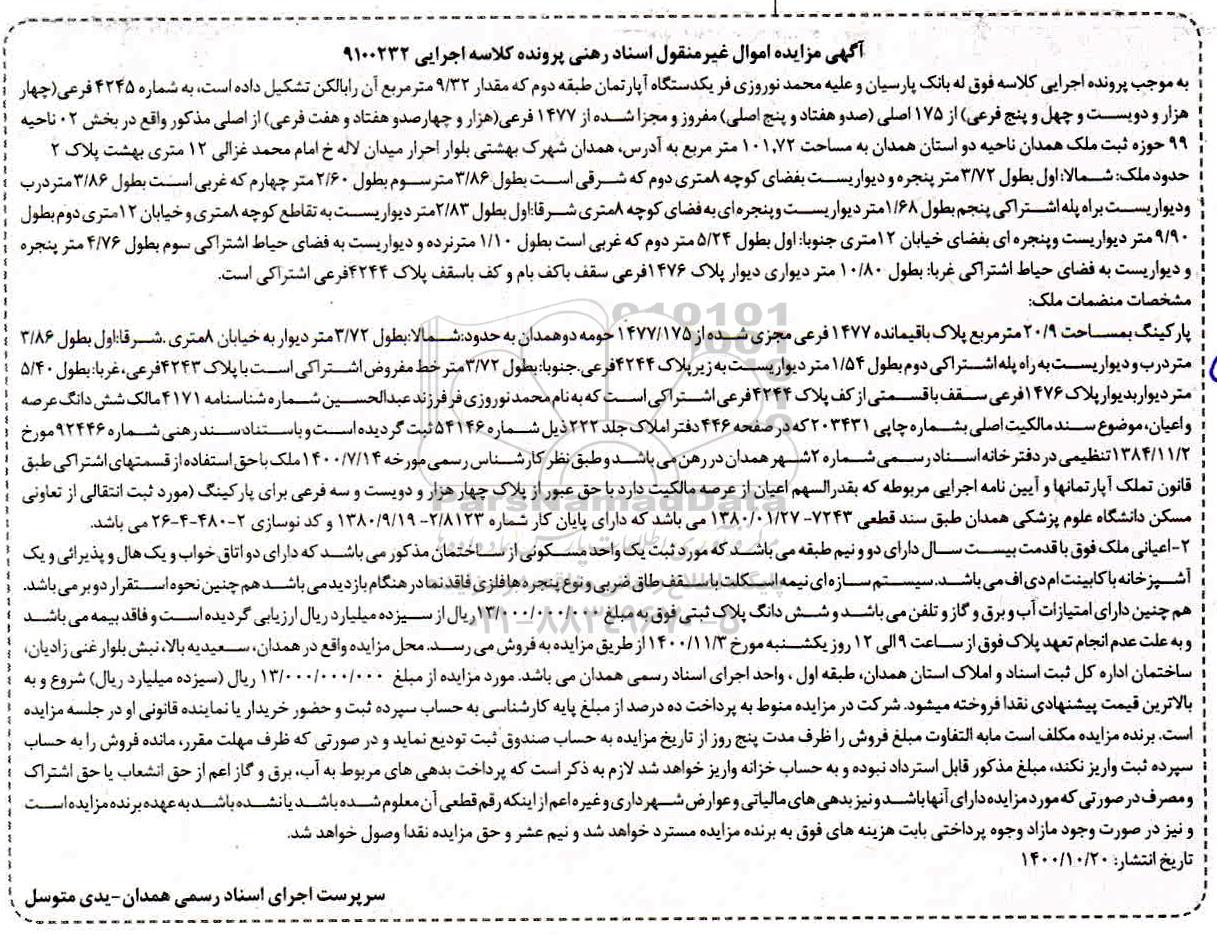 آگهی مزایده اموال غیرمنقول اسناد رهنی پرونده کلاسه اجرایی ۹۱۰۰۲۳۲
به موجب پرونده اجرایی کلاسه فوق له بانک پارسیان و علیه محمد نوروزی فر یکدستگاه آپارتمان طبقه دوم که مقدار ۹/۳۲ مترمربع آن رابالکن تشکیل داده است، به شماره ۴۲۴۵ فرعی(چهار
هزار و دویست و چهل و پنج فرعی) از ۱۷۵ اصلی (صدو هفتاد و پنج اصلی) مفروز و مجزا شده از ۱۴۷۷ فرعی(هزار و چهارصدو هفتاد و هفت فرعی) از اصلی مذکور واقع در بخش ۰۲ ناحیه
۹۹ حوزه ثبت ملک همدان ناحیه دو استان همدان به مساحت ۱۰۱,۷۲ متر مربع به آدرس، همدان شهرک بهشتی بلوار احرار میدان لاله خ امام محمد غزالی ۱۲ متری بهشت پلاک ۲
حدود ملک: شمالا: اول بطول ۳/۷۲ متر پنجره و دیواریست بفضای کوچه ۸متری دوم که شرقی است بطول ۳/۸۶ متر سوم بطول ۲/۶۰ متر چهارم که غربی است بطول ۳/۸۶ متردرب
ودیواریست براه پله اشتراکی پنجم بطول ۱/۶۸ متر دیواریست وپنجره ای به فضای کوچه ۸متری شرقا:اول بطول ۲/۸۳متر دیواریست به تقاطع کوچه ۸متری و خیابان ۱۲متری دوم بطول
۹/۹۰ متر دیواریست وپنجره ای بفضای خیابان ۱۲متری جنوبا: اول بطول ۵/۲۴ متر دوم که غربی است بطول ۱/۱۰ مترنرده و دیواریست به فضای حیاط اشتراکی سوم بطول ۴/۷۶ متر پنجره
و دیواریست به فضای حیاط اشتراکی غربا: بطول ۱۰/۸۰ متر دیواری دیوار پلاک ۱۴۷۶فرعی سقف باکف بام و کف باسقف پلاک ۴۲۴۴فرعی اشتراکی است.
مشخصات منضمات ملک:
پارکینگ بمساحت ۲۰/۹ مترمربع پلاک باقیمانده ۱۴۷۷ فرعی مجزی شده از ۱۴۷۷/۱۷۵ حومه دو همدان به حدود:شمالا:بطول ۳/۷۲ متر دیوار به خیابان ۸متری .شرقا:اول بطول ۳/۸۶
متر درب و دیواریست به راه پله اشتراکی دوم بطول ۱/۵۴ متر دیواریست به زیر پلاک ۴۲۴۴فرعی.جنوبا: بطول ۳/۷۲ متر خط مفروض اشتراکی است با پلاک ۴۲۴۳فرعی، غربا: بطول ۵/۴۰
متر دیوار بدیوار پلاک ۱۴۷۶فرعی سقف با قسمتی از کف پلاک ۴۲۴۴ فرعی اشتراکی است که به نام محمد نوروزی فر فرزند عبدالحسین شماره شناسنامه ۴۱۷۱ مالک شش دانگ عرصه
و اعیان، موضوع سند مالکیت اصلی بشماره چاپی ۲۰۳۴۳۱ که در صفحه ۴۴۶ دفتر املاک جلد ۲۲۲ ذیل شماره ۵۴۱۴۶ ثبت گردیده است و باستناد سند رهنی شماره ۹۲۴۴۶ مورخ
۱۳۸۴/۱۱/۲ تنظیمی در دفترخانه اسناد رسمی شماره ۲ شهر همدان در رهن می باشد و طبق نظر کارشناس رسمی مورخه ۱۴۰۰/۷/۱۴ ملک با حق استفاده از قسمتهای اشتراکی طبق
قانون تملک آپارتمانها و آیین نامه اجرایی مربوطه که بقدرالسهم اعیان از عرصه مالکیت دارد با حق عبور از پلاک چهار هزار و دویست و سه فرعی برای پارکینگ (مورد ثبت انتقالی از تعاونی
مسکن دانشگاه علوم پزشکی همدان طبق سند قطعی ۷۲۴۳- ۱۳۸۰/۰۱/۲۷ می باشد که دارای پایان کار شماره ۲/۸۱۲۳- ۱۳۸۰/۹/۱۹ و کد نوسازی ۲-۴۸۰-۴-۲۶ می باشد.
۲-اعیانی ملک فوق با قدمت بیست سال دارای دو و نیم طبقه می باشد که مورد ثبت یک واحد مسکونی از ساختمان مذکور می باشد که دارای دو اتاق خواب و یک هال و پذیرائی و یک
آشپزخانه با کابینت ام دی اف می باشد. سیستم سازه ای نیمه اسکلت با سقف طاق ضربی و نوع پنجره ها فلزی فاقد نما در هنگام بازدید می باشد هم چنین نحوه استقرار دو بر می باشد.
هم چنین دارای امتیازات آب و برق و گاز و تلفن می باشد و شش دانگ پلاک ثبتی فوق به مبلغ ۱۳/۰۰۰/۰۰۰/۰۰۰ ریال از سیزده میلیارد ریال ارزیابی گردیده است و فاقد بیمه می باشد
و به علت عدم انجام تعهد پلاک فوق از ساعت ۹ الی ۱۲ روز یکشنبه مورخ ۱۴۰۰/۱۱/۳ از طریق مزایده به فروش می رسد. محل مزایده واقع در همدان، سعیدیه بالا، نبش بلوار غنی زادیان،
ساختمان اداره کل ثبت اسناد و املاک استان همدان، طبقه اول ، واحد اجرای اسناد رسمی همدان می باشد. مورد مزایده از مبلغ ۱۳/۰۰۰/۰۰۰/۰۰۰ ریال (سیزده میلیارد ریال) شروع و به
بالاترین قیمت پیشنهادی نقدا فروخته میشود. شرکت در مزایده منوط به پرداخت ده درصد از مبلغ پایه کارشناسی به حساب سپرده ثبت و حضور خریدار یا نماینده قانونی او در جلسه مزایده
است. برنده مزایده مکلف است مابه التفاوت مبلغ فروش را ظرف مدت پنج روز از تاریخ مزایده به حساب صندوق ثبت تودیع نماید و در صورتی که ظرف مهلت مقرر، مانده فروش را به حساب
سپرده ثبت واریز نکند، مبلغ مذکور قابل استرداد نبوده و به حساب خزانه واریز خواهد شد لازم به ذکر است که پرداخت بدهی های مربوط به آب، برق و گاز اعم از حق انشعاب یا حق اشتراک
و مصرف در صورتی که مورد مزایده دارای آنها باشد و نیز بدهی های مالیاتی و عوارض شهرداری و غیره اعم از اینکه رقم قطعی آن معلوم شده باشد یا نشده باشد به عهده برنده مزایده است
و نیز در صورت وجود مازاد وجوه پرداختی بابت هزینه های فوق به برنده مزایده مسترد خواهد شد و نیم عشر و حق مزایده نقدا وصول خواهد شد.
تاریخ انتشار: ۱۴۰۰/۱۰/۲۰
سرپرست اجرای اسناد رسمی همدان-یدی متوسل
ParsNamadData